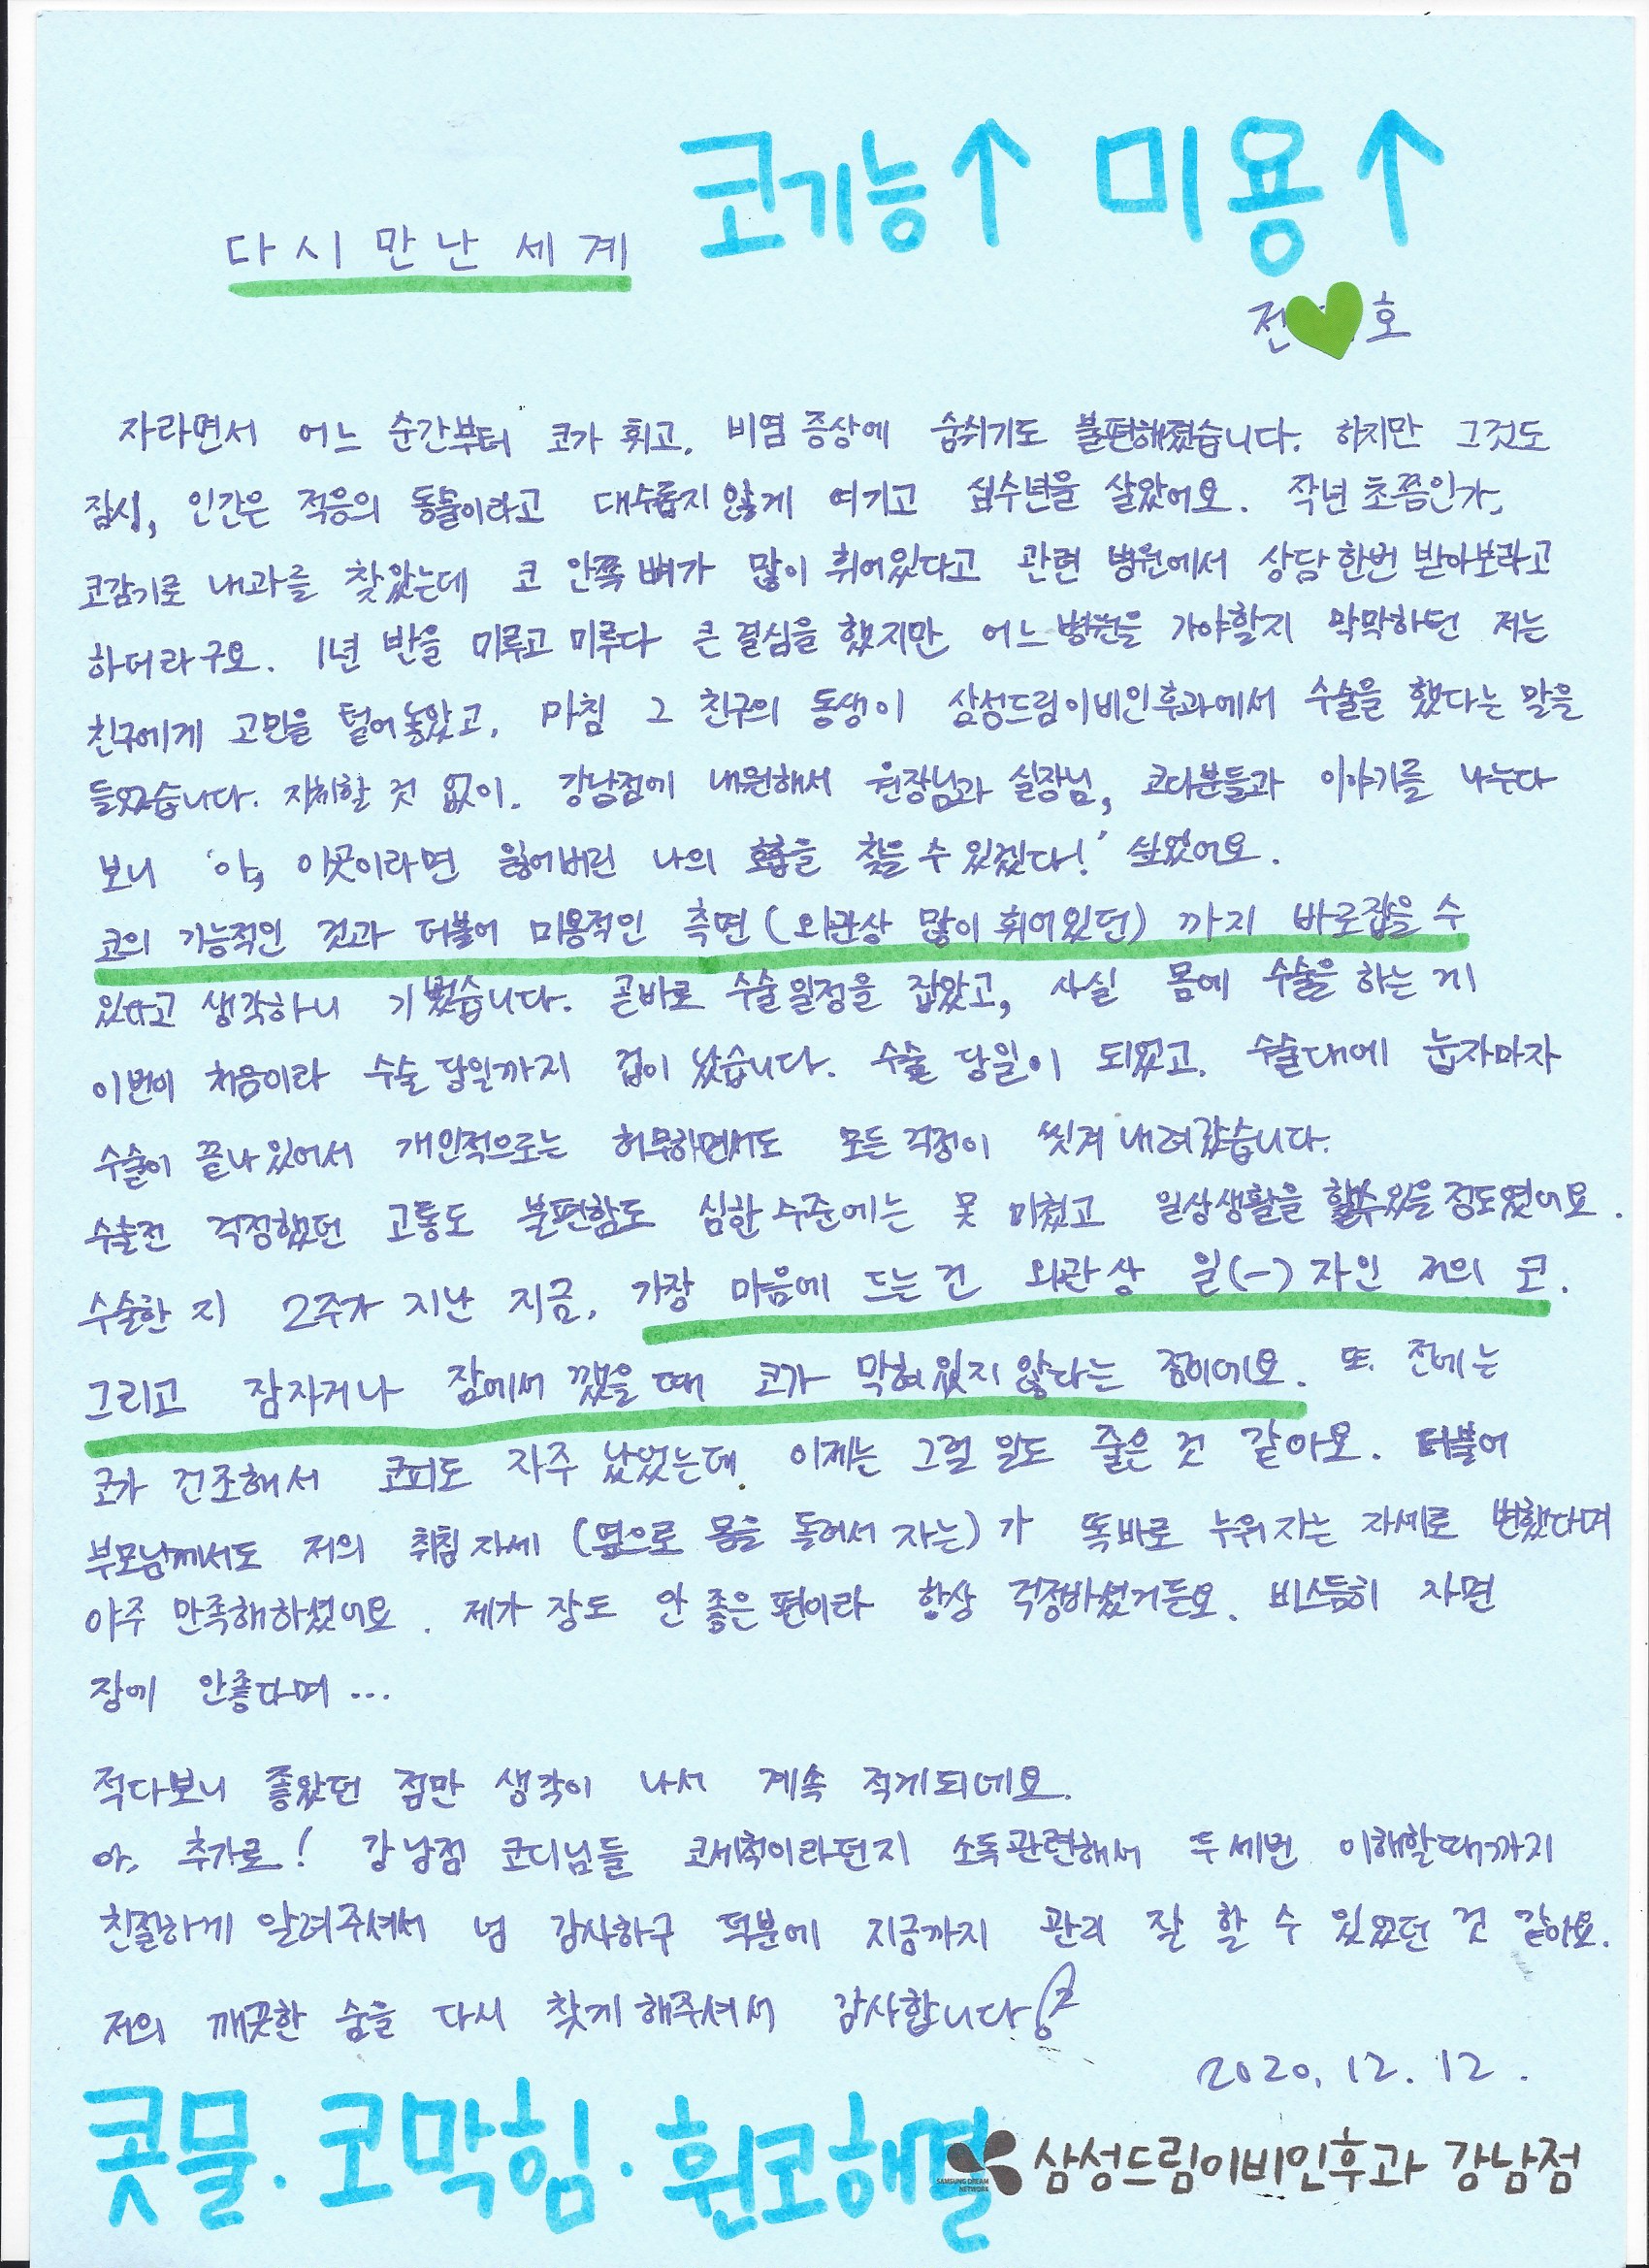 코기능↑ 미용↑
다시 만난 세계
전 호
자라면서 어느 순간부터 코가 휘고, 비염 증상에 숨쉬기도 불편해졌습니다. 하지만 그것도
잠시, 인간은 적응의 동물이라고 대수롭지 않게 여기고 십수년을 살았어요. 작년 초쯤인가,
코감기로 내과를 찾았는데 코 안쪽 뼈가 많이 휘어있다고 관련 병원에서 상담 한번 받아보라고
하더라구요. 1년 반을 미루고 미루다 큰 결심을 했지만 어느 병원을 가야할지 막막하던 저는
친구에게 고민을 털어놓았고, 마침 그 친구의 동생이 삼성드림이비인후과에서 수술을 했다는 말을
들었습니다. 지체할 것 없이, 강남점에 내원해서 원장님과 실장님, 코디분들과 이야기를 나누다
보니 '아, 이곳이라면 잃어버린 나의 호흡을 찾을 수 있겠다!' 싶었어요.
코의 기능적인 것과 더불어 미용적인 측면 (외관상 많이 휘어있던) 까지 바로잡을 수
있다고 생각하니 기뻤습니다. 곧바로 수술일정을 잡았고, 사실 몸에 수술을 하는 게
이번이 처음이라 수술 당일까지 겁이 났습니다. 수술 당일이 되었고, 수술대에 눕자마자
수술이 끝나있어서 개인적으로는 허무하면서도 모든 걱정이 씻겨 내려갔습니다.
수술전 걱정했던 고통도 불편함도 심한 수준에는 못 미쳤고 일상생활을 할수있을 정도였어요.
수술한 지 2주가 지난 지금, 가장 마음에 드는 건 외관상 일(一) 자인 저의 코.
그리고 잠자거나 잠에서 깼을 때 코가 막혀있지 않다는 점이에요. 또 전에는
코가 건조해서 코피도 자주 났었는데, 이제는 그럴 일도 줄은 것 같아요. 더불어
부모님께서도 저의 취침자세 (옆으로 몸을 돌려서 자는) 가 똑바로 누워자는 자세로 변했다며
아주 만족해하셨어요. 제가 장도 안 좋은 편이라 항상 걱정하셨거든요. 비스듬히 자면
장에 안좋다며...
적다보니 좋았던 점만 생각이 나서 계속 적게되네요.
아, 추가로! 강남점 코디님들 코세척이라던지 소독관련해서 두세번 이해할때까지
친절하게 알려주셔서 넘 감사하구 덕분에 지금까지 관리 잘 할 수 있었던 것 같아요.
저의 깨끗한 숨을 다시 찾게 해주셔서 감사합니다!
2020. 12. 12.
콧물·코막힘·휜코해결
SAMSUNG DREAM NETWORK
삼성드림이비인후과 강남점